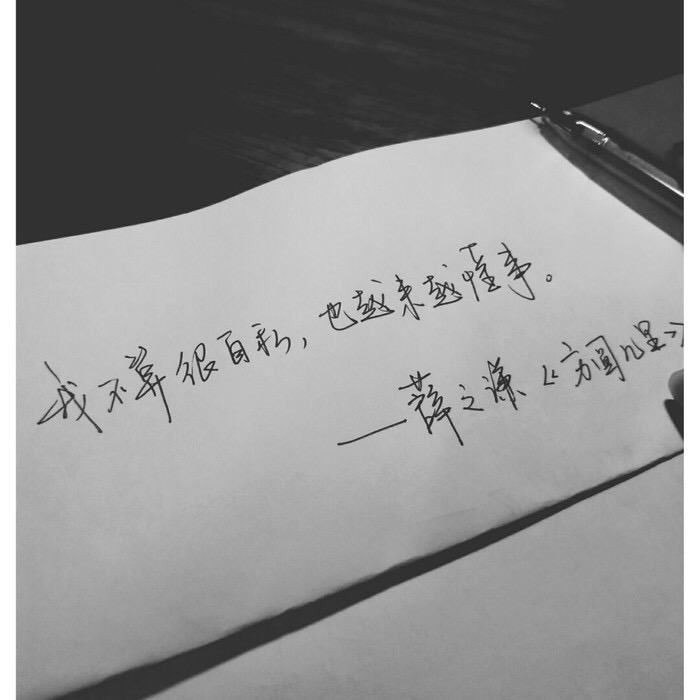 我不算很自私，也越来越懂事。
——薛之谦《方圆几里》